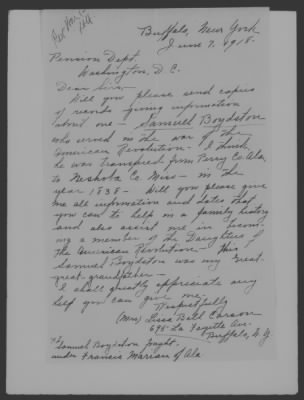 Rev War
Buffalo, New York
June 7, 1918.
Pension Dept.
Washington, D. C.
Dear Sir:-
Will you please send copies
of records giving information
about one - Samuell Boydston
who served in the war of the
American Revolution - I think
he was transfered from Perry Co. Ala.
to Neshoba Co. Miss - in the
year 1838 - Will you please give
me all information and dates that
you can to help in a family history
and also assist me in becom-
ing a member of the Daughters of
the American Revolution - This
Samuel Boydston was my Great-
great-grandfather -
I shall greatly appreciate any
help you can give me.
Respectfully
(Mrs) Lissa Ball Carson
698 La Fayette Ave.
Buffalo, N. Y.
Samuel Boydston fought
under Francis Marian of Ala